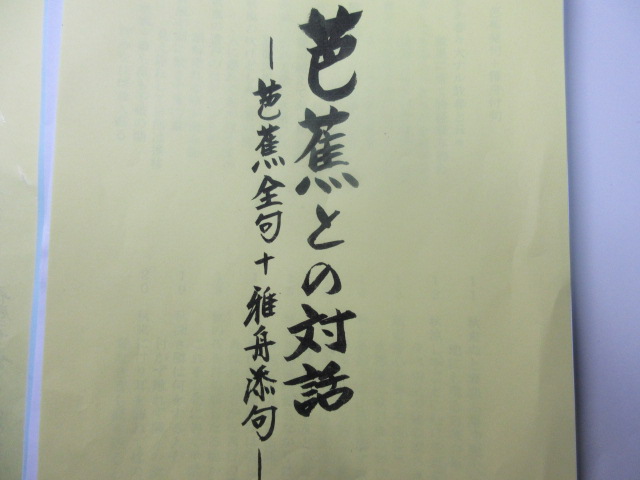 芭蕉との対話
―芭蕉全句+雅舟添句―